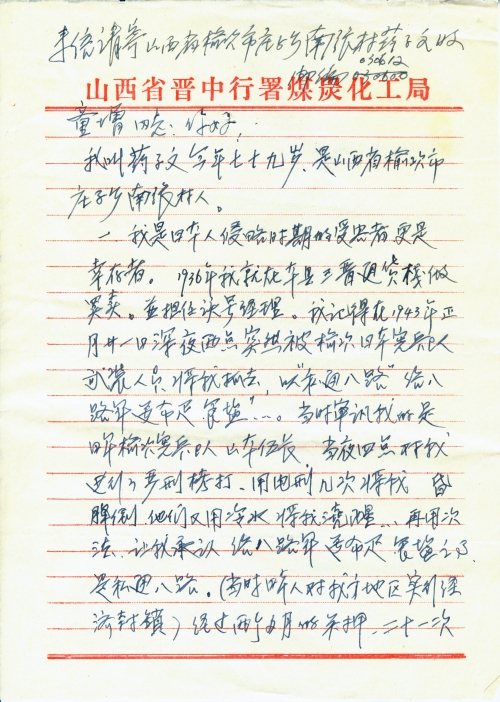 来信请寄山西省榆次市庄子乡南张村药子文收
邮编 030612
030600
山西省晋中行署煤炭化工局
童增同志：你好，
我叫药子文今年七十九岁，是山西省榆次市
庄子乡南张村人。
一、我是日本人侵略时期的受害者更是
幸存者。1936年我就在本县三晋通货栈做
买卖。并担任该号经理。我记得在1943年正
月廿一日深夜两点突然被榆次日本宪兵队
武装人员将我抓去，以“私通八路”给八
路军送布疋食盐”…。当时审讯我的是
日军榆次宪兵队山本伍长，当夜四点对我
进行了严刑拷打、用电刑几次将我昏
睥倒他们又用冷水将我浇醒…再用次
法，让我承认给八路军送布疋食盐之事
是私通八路。（当时日本人对我方地区实行经
济封锁）经过两个多月的关押，二十一次